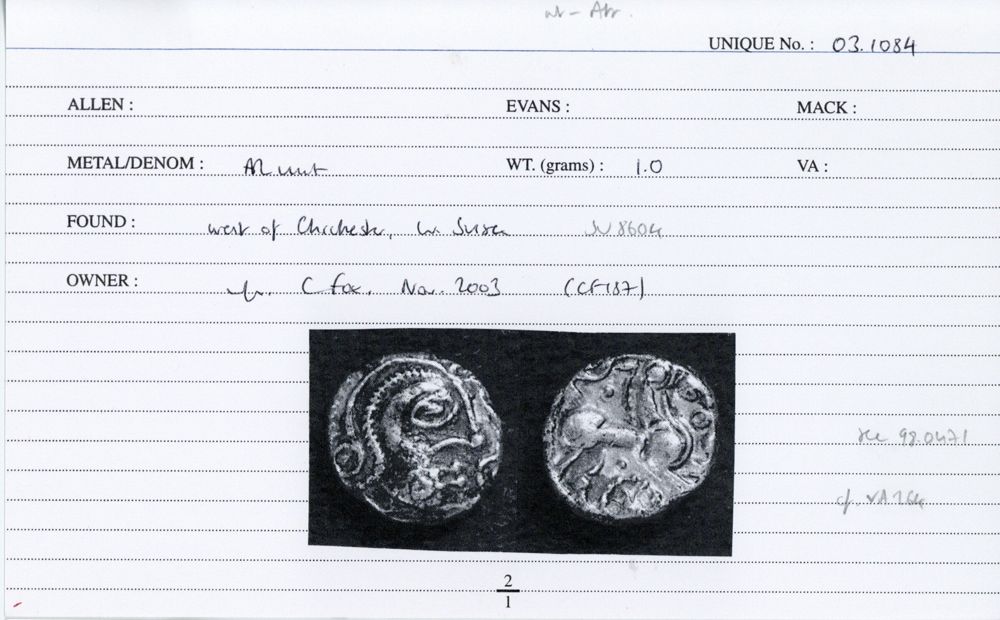 UNIQUE No. : 03.1084
ALLEN : EVANS : MACK :
METAL/DENOM : AR unit WT. (grams) : 1.0 VA :
FOUND : west of Chichester, W. Sussex SU 8604
OWNER : C Fox, Nov. 2003 (CF187)
see 98.0471
cf. VA 264
2
1